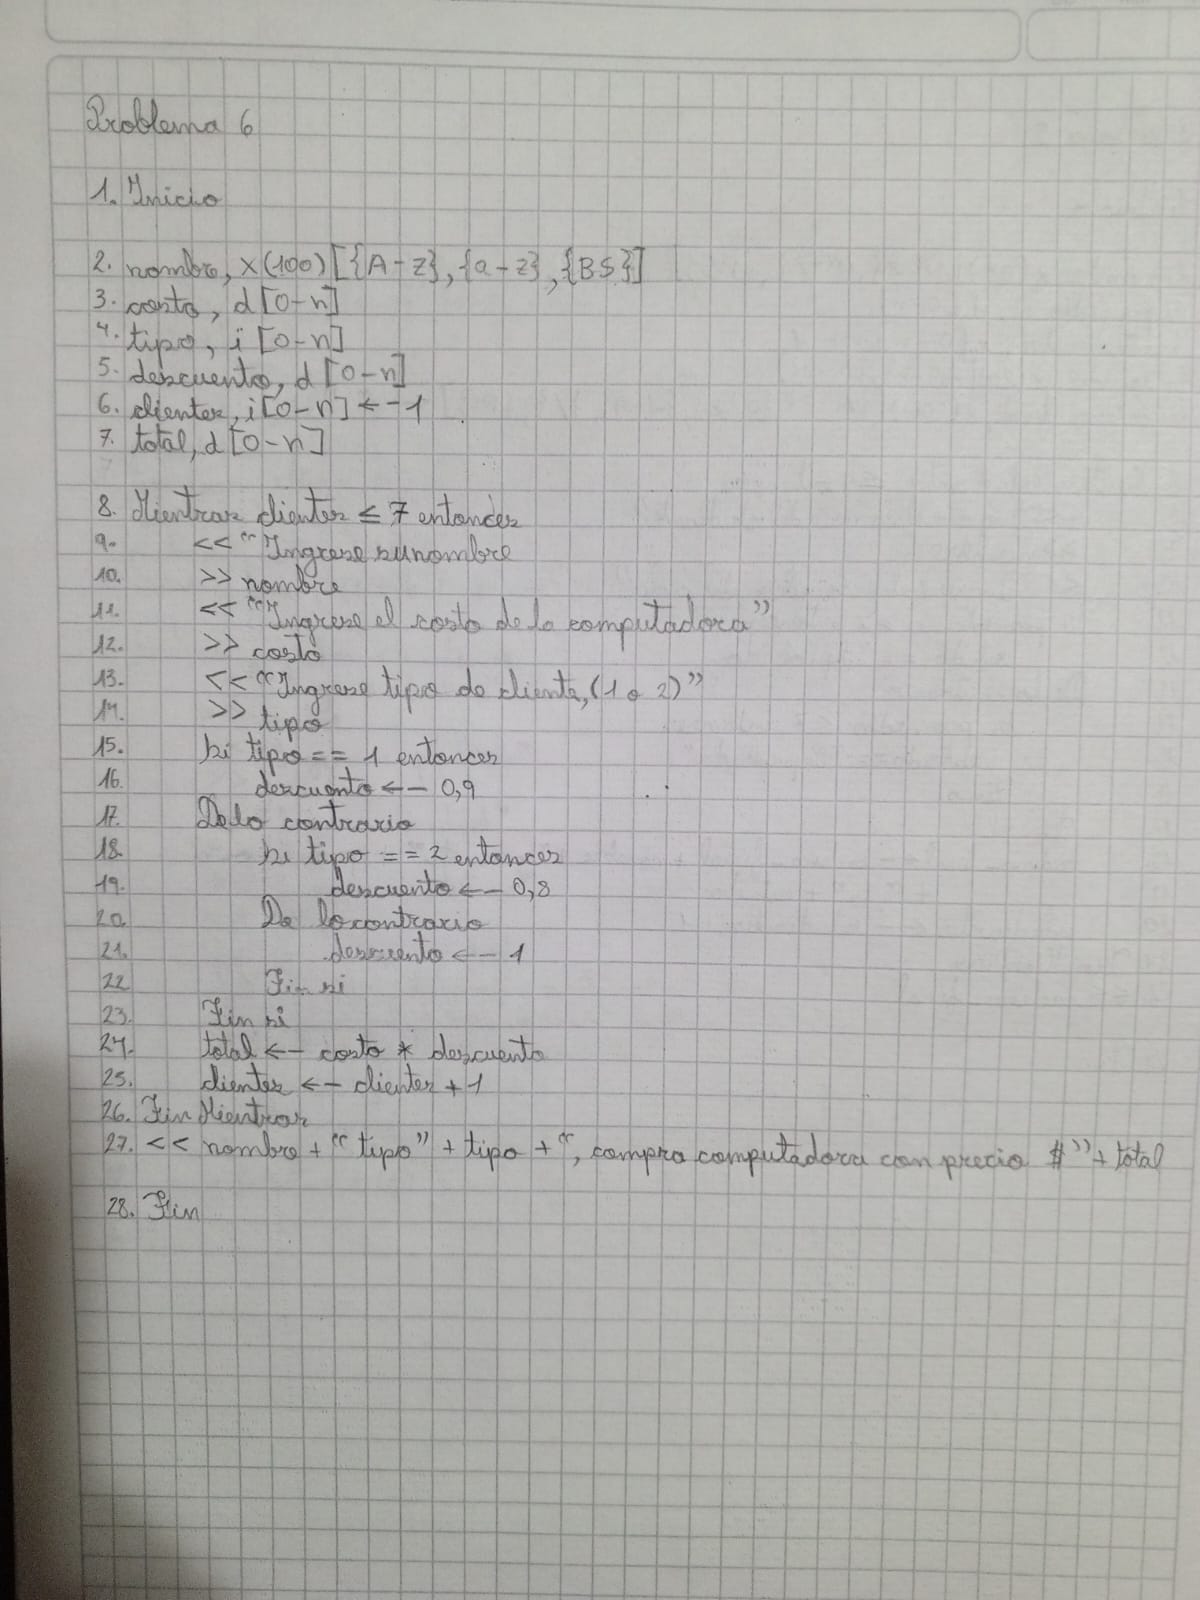 Problema 6
1. Inicio
2. nombre, X(100)[{A-Z},{a-z},{BS}]
3. costo, d[0-n]
4. tipo, i[0-n]
5. descuento, d[0-n]
6. clientes, i[0-n] <- 1
7. total, d[0-n]
8. Mientras clientes ≤ 7 entonces
9. << "Ingrese su nombre
10. >> nombre
11. << "Ingrese el costo de la computadora"
12. >> costo
13. << "Ingrese tipo de cliente, (1 o 2)"
14. >> tipo
15. Si tipo == 1 entonces
16. descuento <- 0,9
17. De lo contrario
18. Si tipo == 2 entonces
19. descuento <- 0,8
20. De lo contrario
21. descuento <- 1
22. Fin si
23. Fin si
24. total <- costo * descuento
25. clientes <- clientes + 1
26. Fin Mientras
27. << nombre + " tipo" + tipo + ", compra computadora con precio $" + total
28. Fin